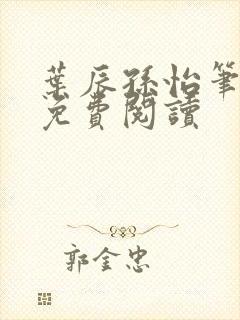 葉辰孫怡筆
免費閱讀
郭金忠